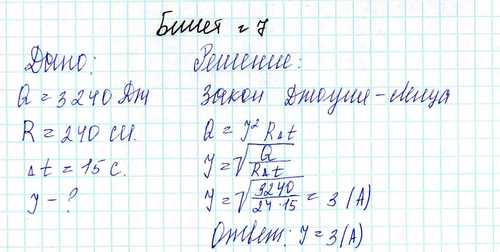 Билет № 7
Дано:
Q = 3240 Дж
R = 240 см.
Δt = 15 с.
J - ?
Решение:
Закон Джоуля-Ленца
Q = J² R Δt
J = √(Q / RΔt)
J = √(3240 / 24·15) = 3 (A)
Ответ: J = 3(A)